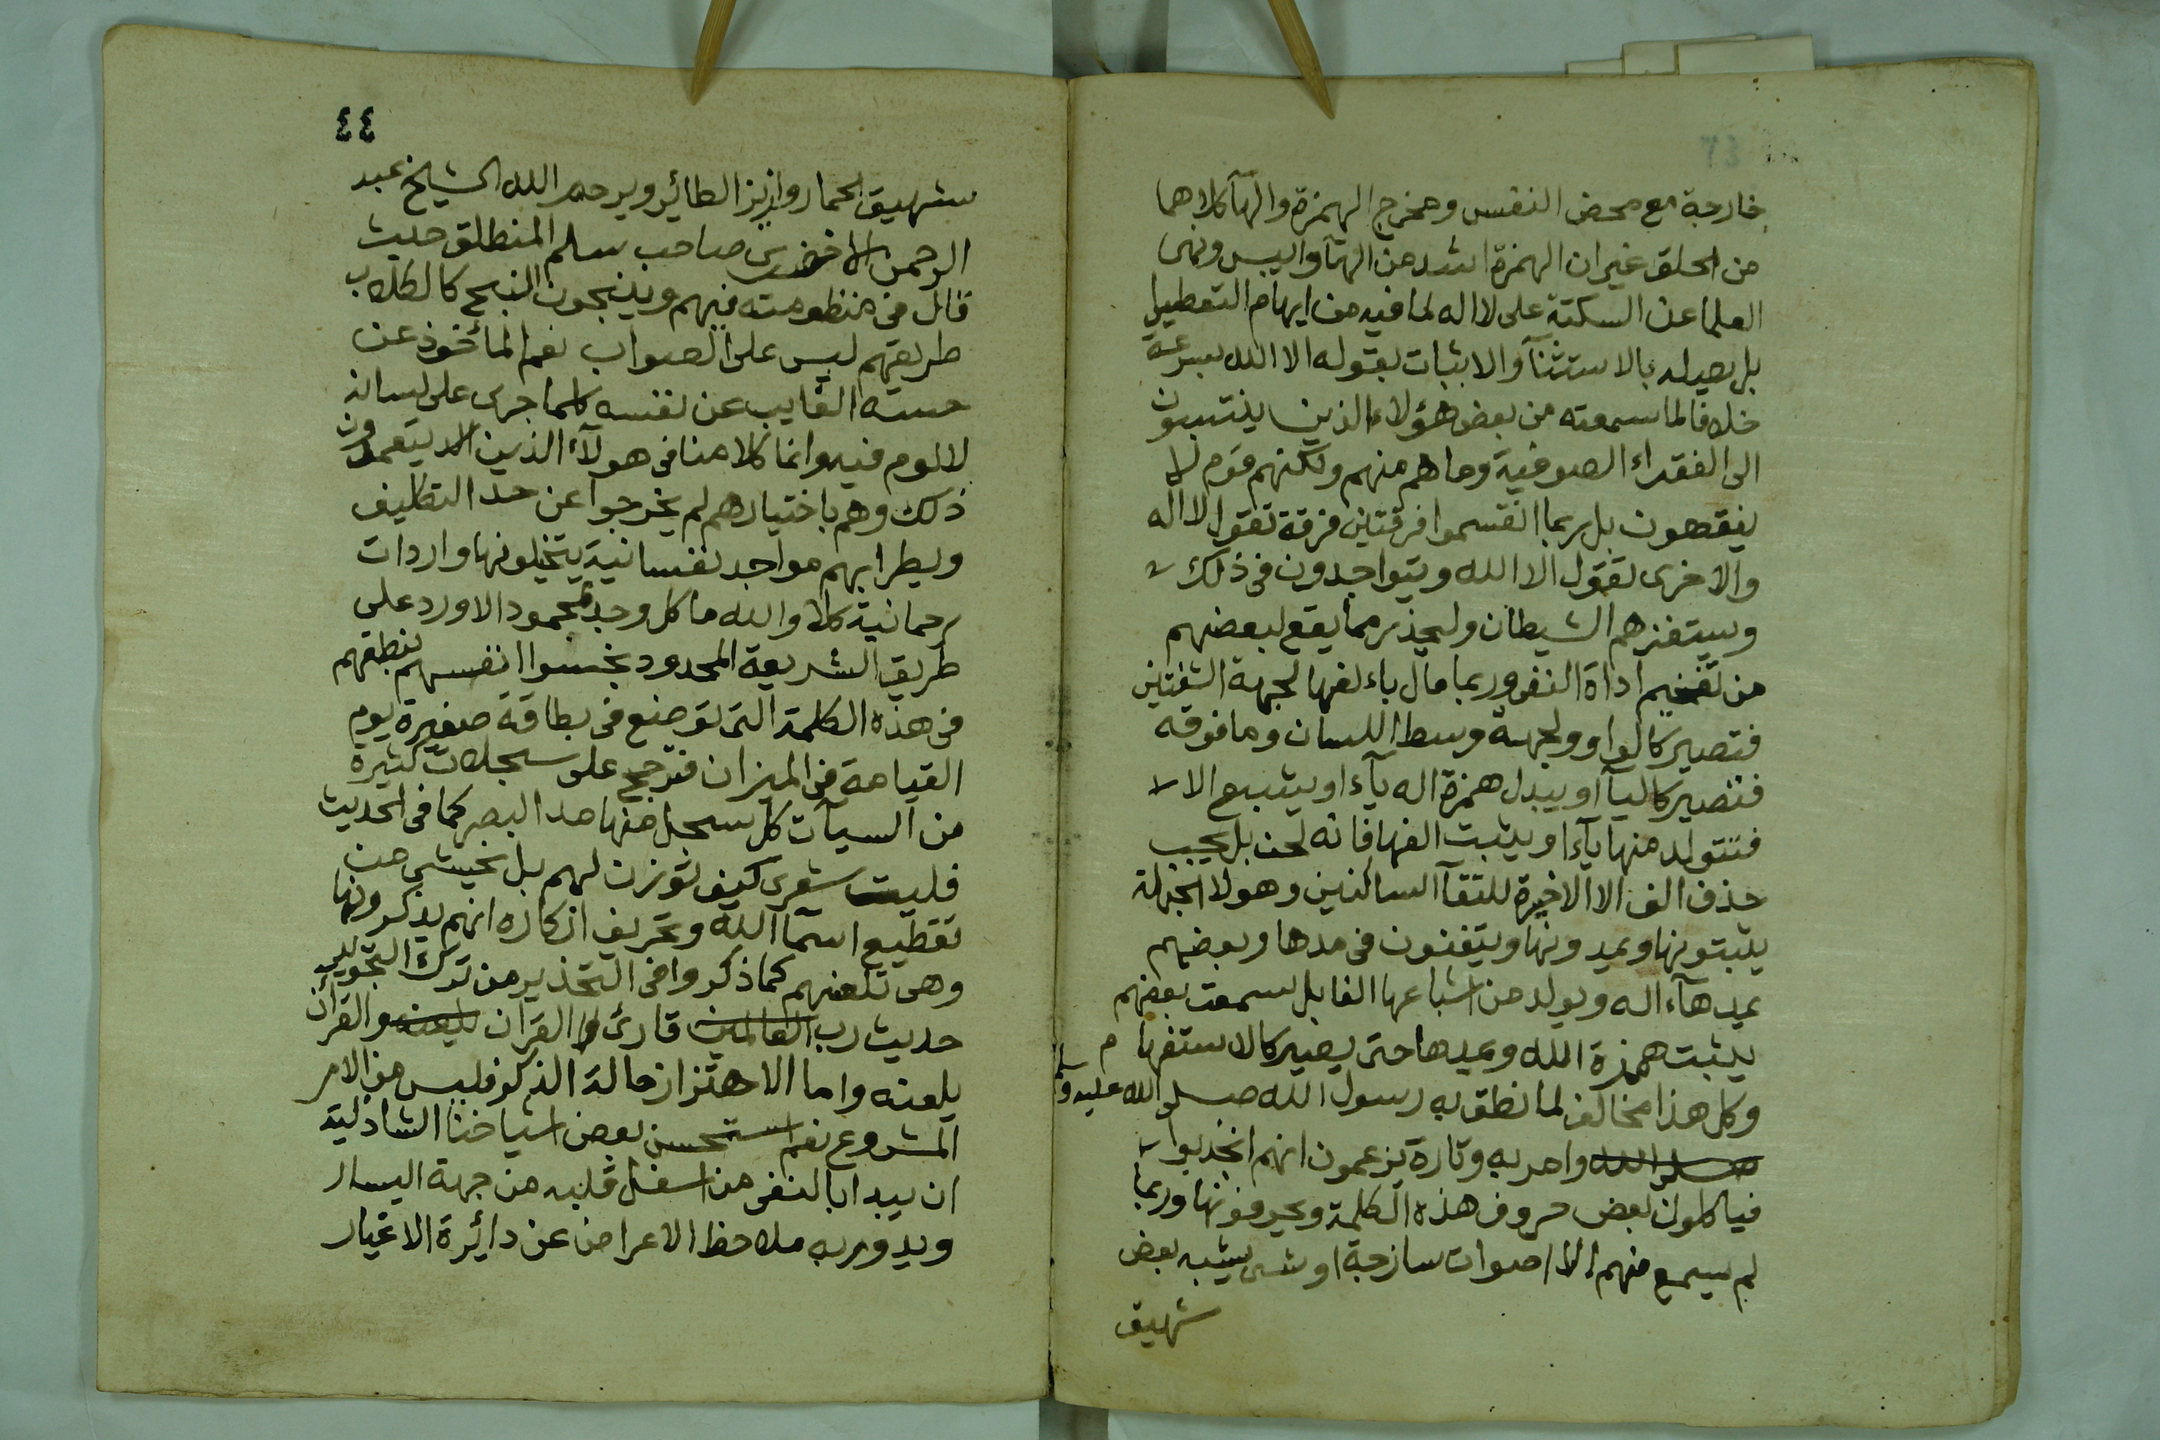 خارجة مع محض النفس ومخرج الهمزة والهآ كلاهما
من الحلق غير ان الهمزة اشد من الهآ واليبس ونهى
العلما عن السكتة على لا اله لما فيه من ايهام التعطيل
بل يصله بالاستثنآ والاثبات بقوله الا الله بسرعة
خلافا لما سمعته من بعض هؤلاء الذين ينتسبون
الى الفقراء الصوفية وما هم منهم ولكنهم قوم لا
يفقهون بل ربما انقسموا فرقتين فرقة تقول لا اله
والاخرى تقول الا الله ويتواجدون في ذلك
ويستفزهم الشيطان وليحذر مما يقع لبعضهم
من تفخيم اداة النفي وربما مال باء لفها لجهة الشفتين
فتصير كالواو ولجهة وسط اللسان وما فوقه
فتصير كاليآ او يبدل همزة اله يآء او يشبع الا
فتتولد منها يآءا ويثبت الفها فانه لحن بل يجب
حذف الف الا الاخيرة للتقآ الساكنين وهولا الجهلة
يثبتونها ويمدونها ويتفننون في مدها وبعضهم
يمد هآء اله ويولد من اشباعها الفا بل سمعت بعضهم
يثبت همزة الله ويمدها حتى يصير كالاستفهام
وكل هذا مخالف لما نطق به رسول الله صلى الله عليه وسلم
صلى الله وامر به وتارة يزعمون انهم انجذبوا
فياكلون بعض حروف هذه الكلمة ويحرفونها وربما
لم يسمع منهم الا اصوات سازجة او شى يشبه بعض
شهيق
٤٤
شهيق الحمار وازيز الطائير ويرحم الله الشيخ عبد
الرحمن الاخضرى صاحب سلم المنطلق حيث
قال في منظومته فيهم وينبحون النبح كالكلاب
طريقهم ليس على الصواب نعم المأخوذ عن
حسه الغايب عن نفسه كلما جرى على لسانه
لا لوم فيه وانما كلامنا في هولآء الذين يتعمدون
ذلك وهم باختيارهم لم يخرجوا عن حد التكليف
ويطرا بهم مواجد نفسانية يتخيلونها واردات
رحمانية كلا والله ما كل وجد محمود الا ورد على
طريق الشريعة المحدود بخسوا انفسهم بنطقهم
في هذه الكلمة التى توضع في بطاقة صغيرة يوم
القيامة في الميزان فترجح على سجلات كثيرة
من السيآت كل سجل منها مد البصر كما في الحديث
فليت شعرى كيف توزن لهم بل يخشى من
تقطيع اسمآ الله وتحريف اذكاره انهم يذكرونها
وهى تلعنهم كما ذكروا في التحذير من ترك التجويد
حديث رب العالمين قارئ القرآن يلعنه والقرآن
يلعنه واما الاهتزاز حالة الذكر فليس من الامر
المشروع نعم استحسن بعض اشياخنا الشاذلية
ان يبدا بالنفى من اسفل قلبه من جهة اليسار
ويدور به ملاحظ الاعراض عن دائرة الاغيار